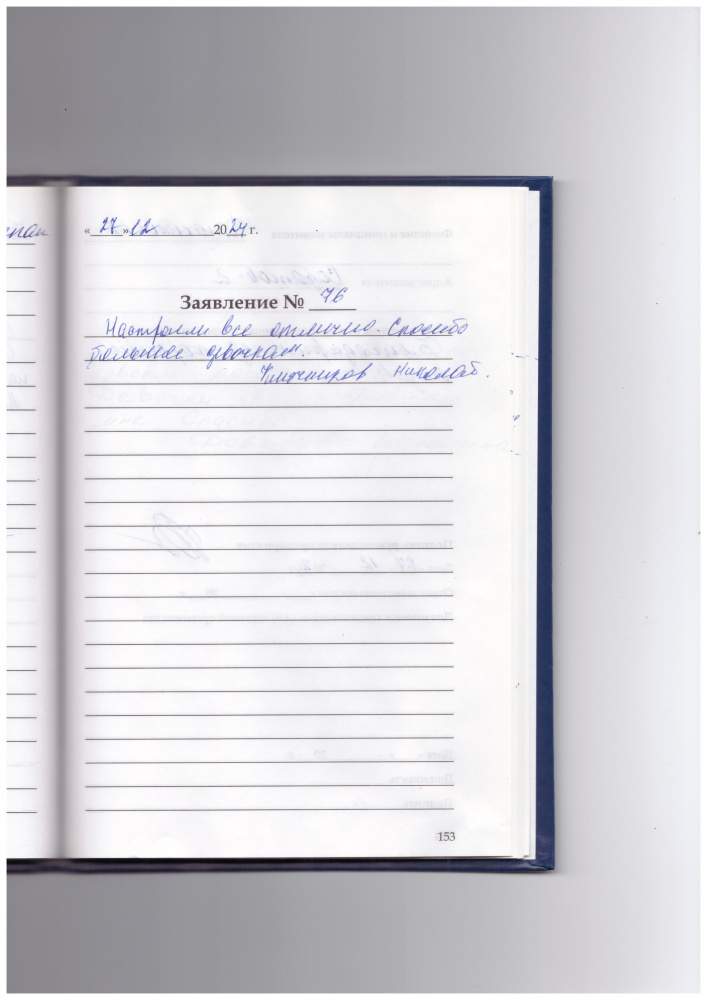 «27» 12 2024 г.
Заявление № 76
Настроили все отлично. Спасибо
большое девочкам.
Николай.
153